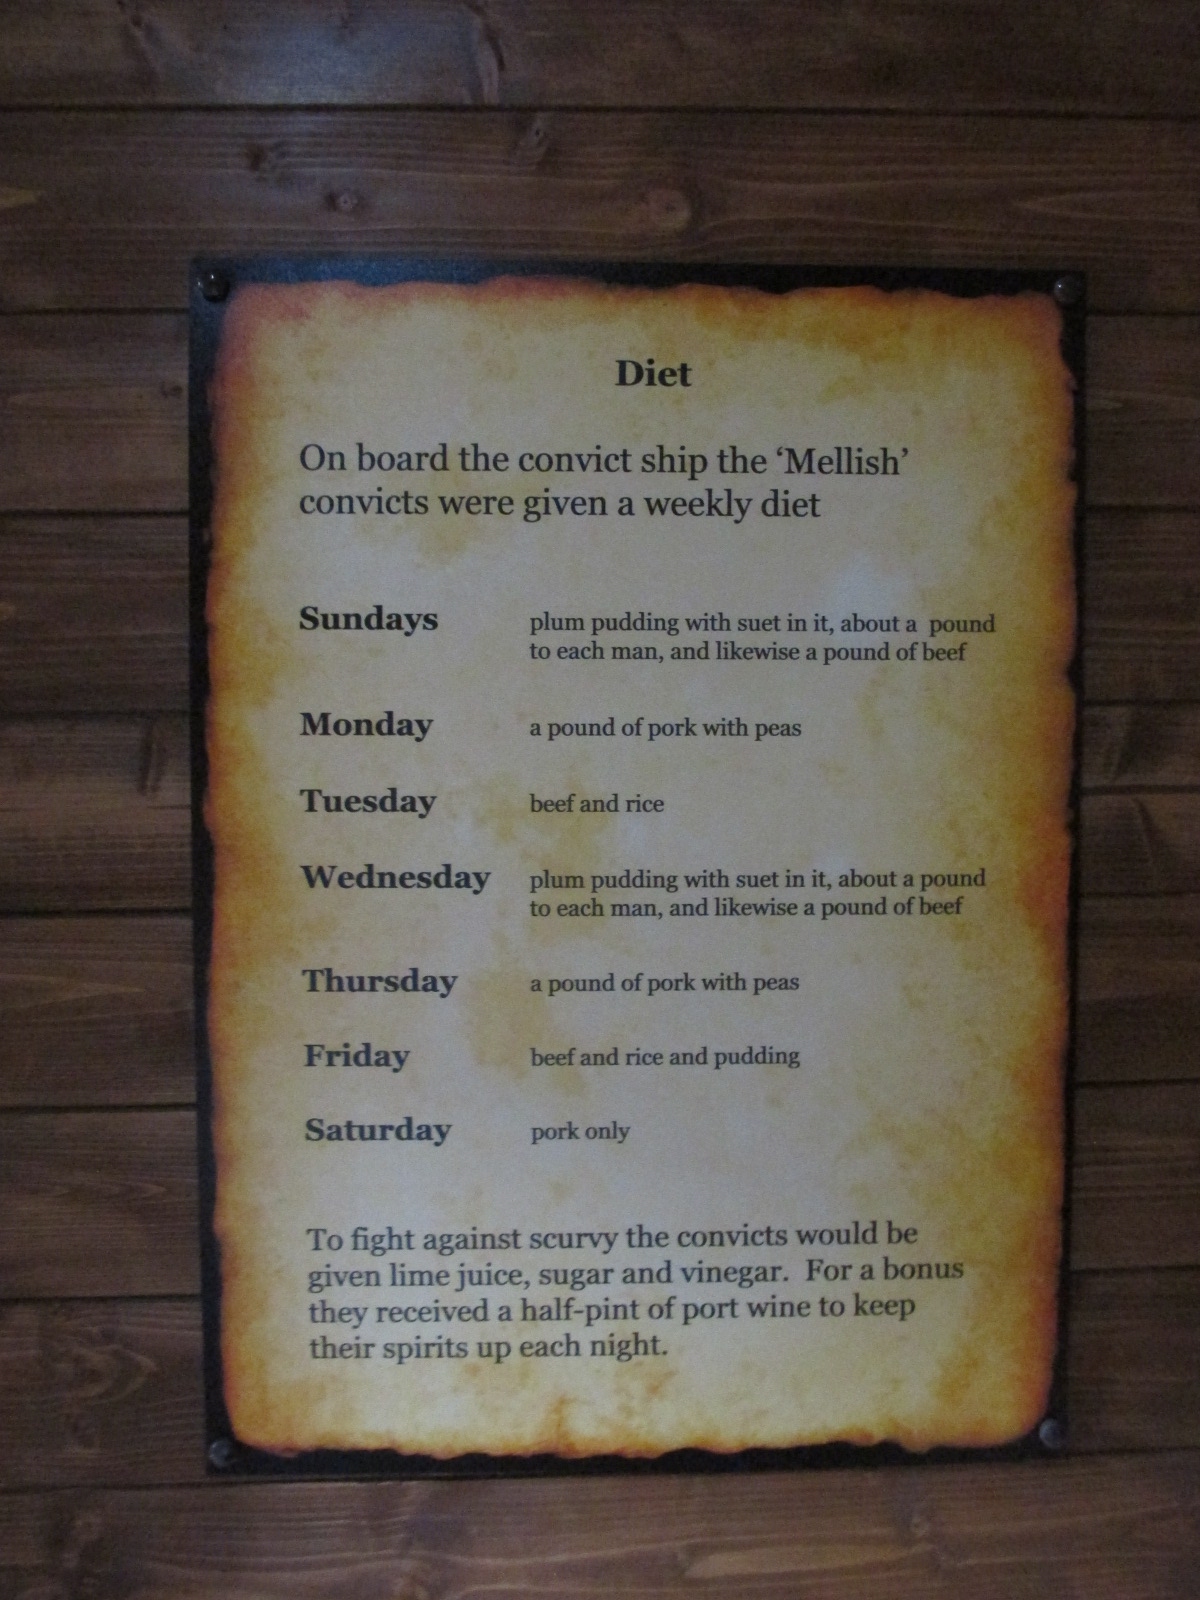 Diet
On board the convict ship the ‘Mellish’
convicts were given a weekly diet
Sundays plum pudding with suet in it, about a pound
to each man, and likewise a pound of beef
Monday a pound of pork with peas
Tuesday beef and rice
Wednesday plum pudding with suet in it, about a pound
to each man, and likewise a pound of beef
Thursday a pound of pork with peas
Friday beef and rice and pudding
Saturday pork only
To fight against scurvy the convicts would be
given lime juice, sugar and vinegar. For a bonus
they received a half-pint of port wine to keep
their spirits up each night.